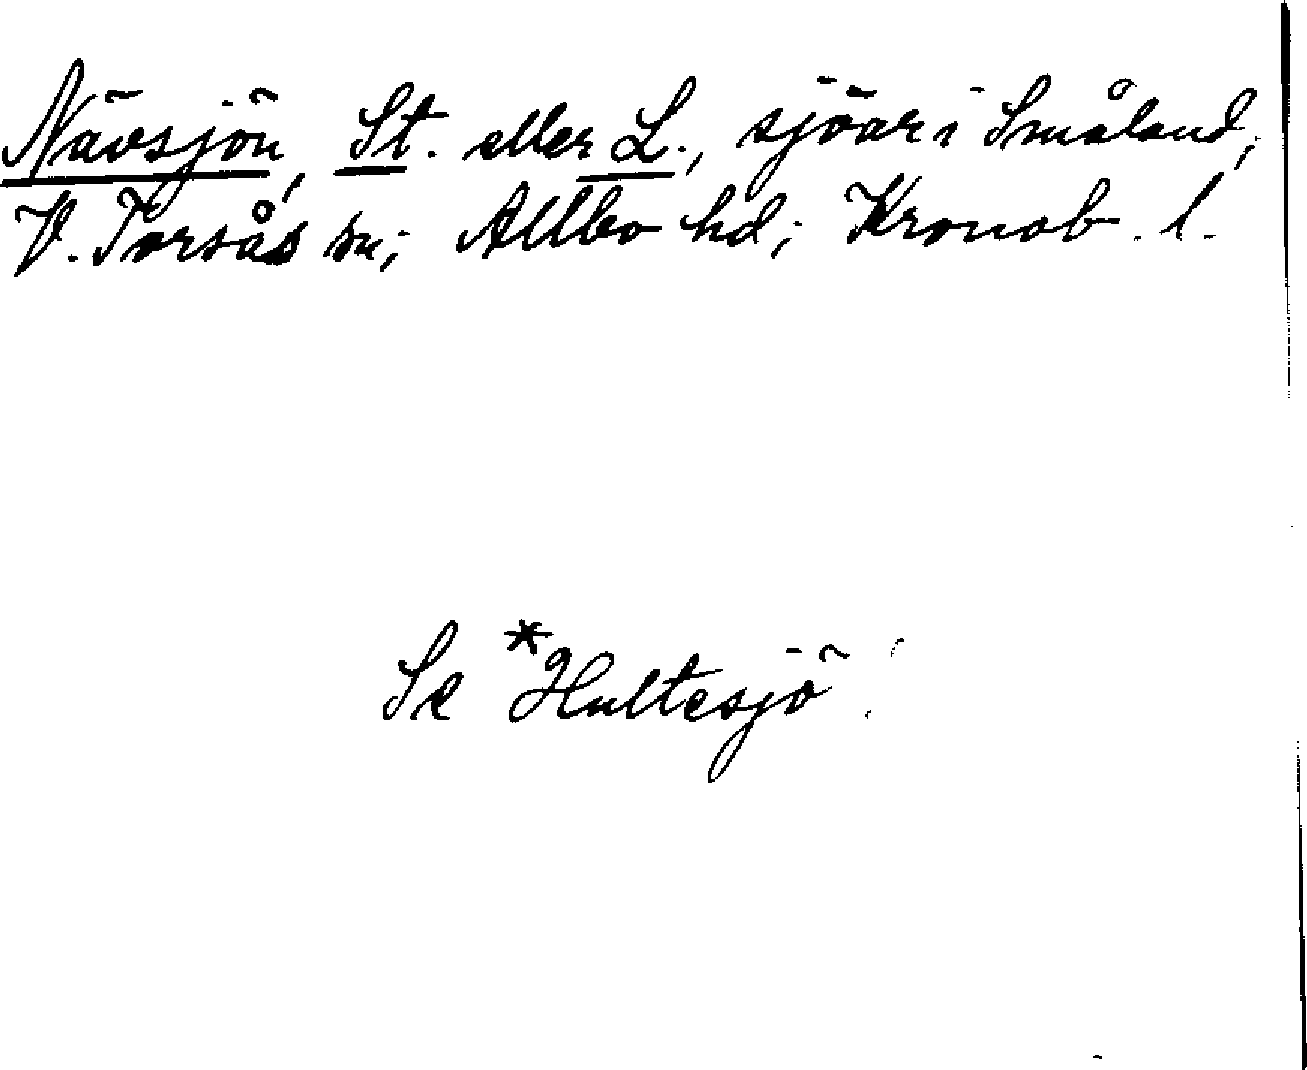 Nävsjön, St. eller L., sjöar i Småland;
V. Torsås sn; Allbo hd; Kronob. l.
Se *Hultesjö!